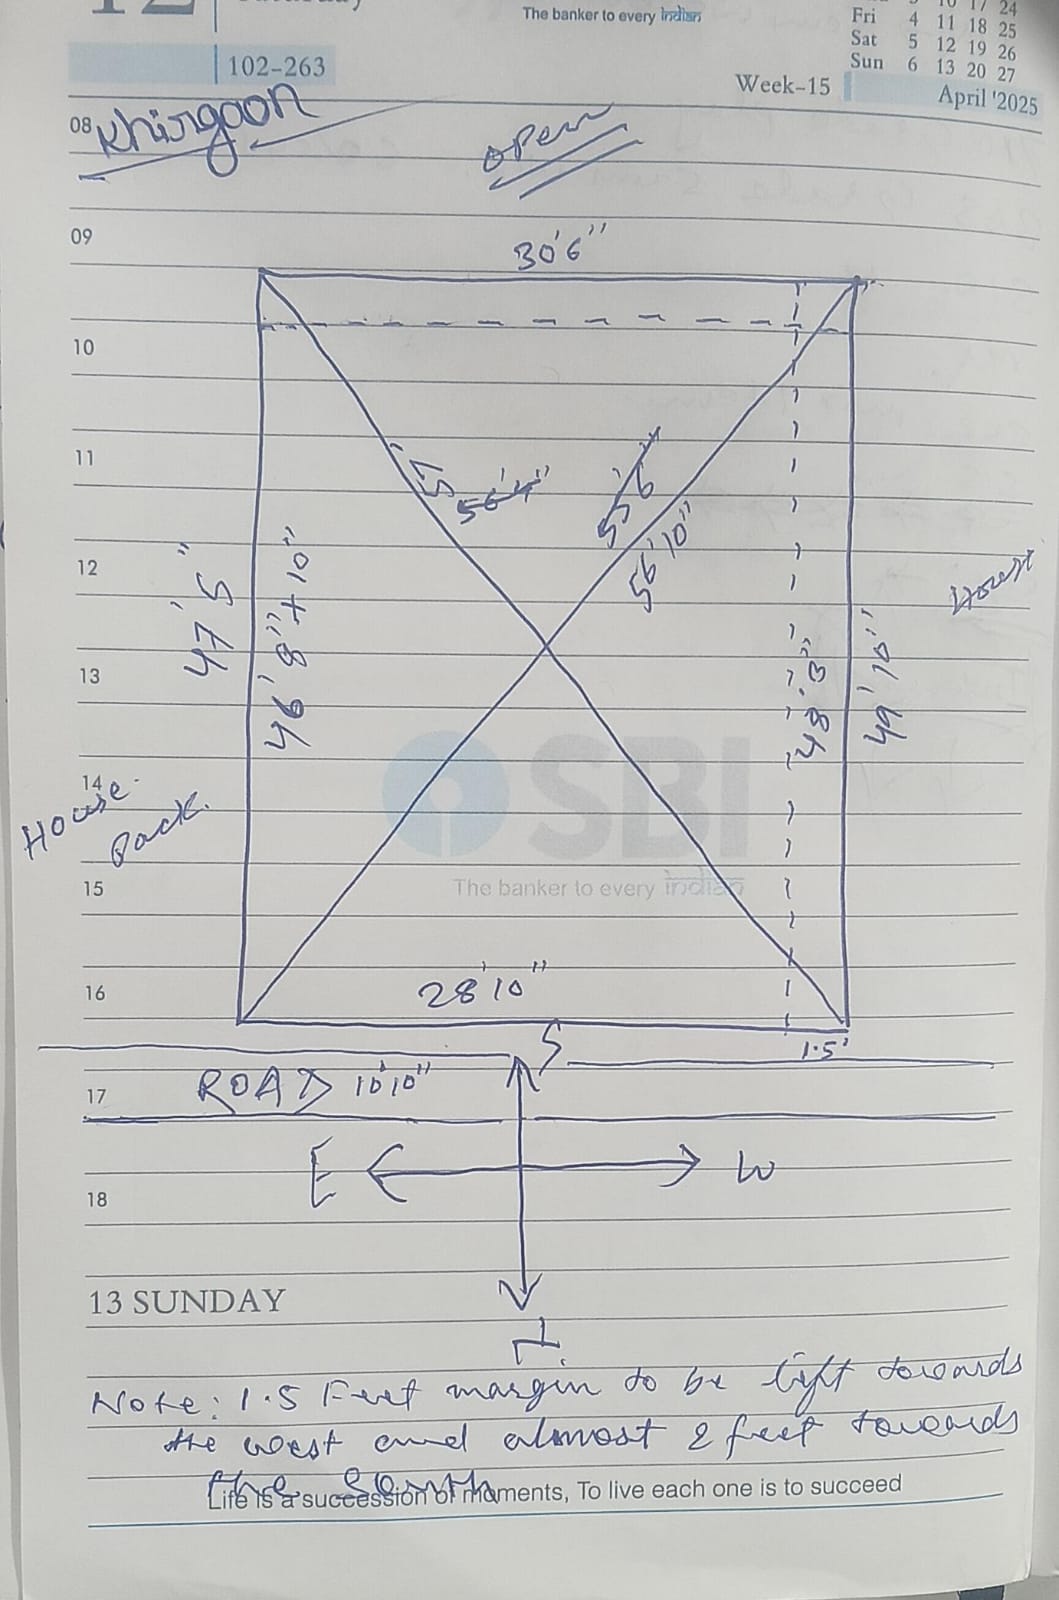 The banker to every indian
10 17 24
Fri 4 11 18 25
Sat 5 12 19 26
Sun 6 13 20 27
102-263
Week-15
April '2025
08
Khirgaon
open
09
30'6"
10
11
56'4"
55'6"
56'10"
12
47'5"
46'8"+10"
House
13
48'3"
49'10"
14
House
Pack.
SBI
The banker to every indian
15
16
28'10"
S
1.5'
17
ROAD 10'10"
E
W
18
13 SUNDAY
N
Note: 1.5 Feet margin to be left towards
the west and almost 2 feet towards
the South
Life is a succession of moments, To live each one is to succeed